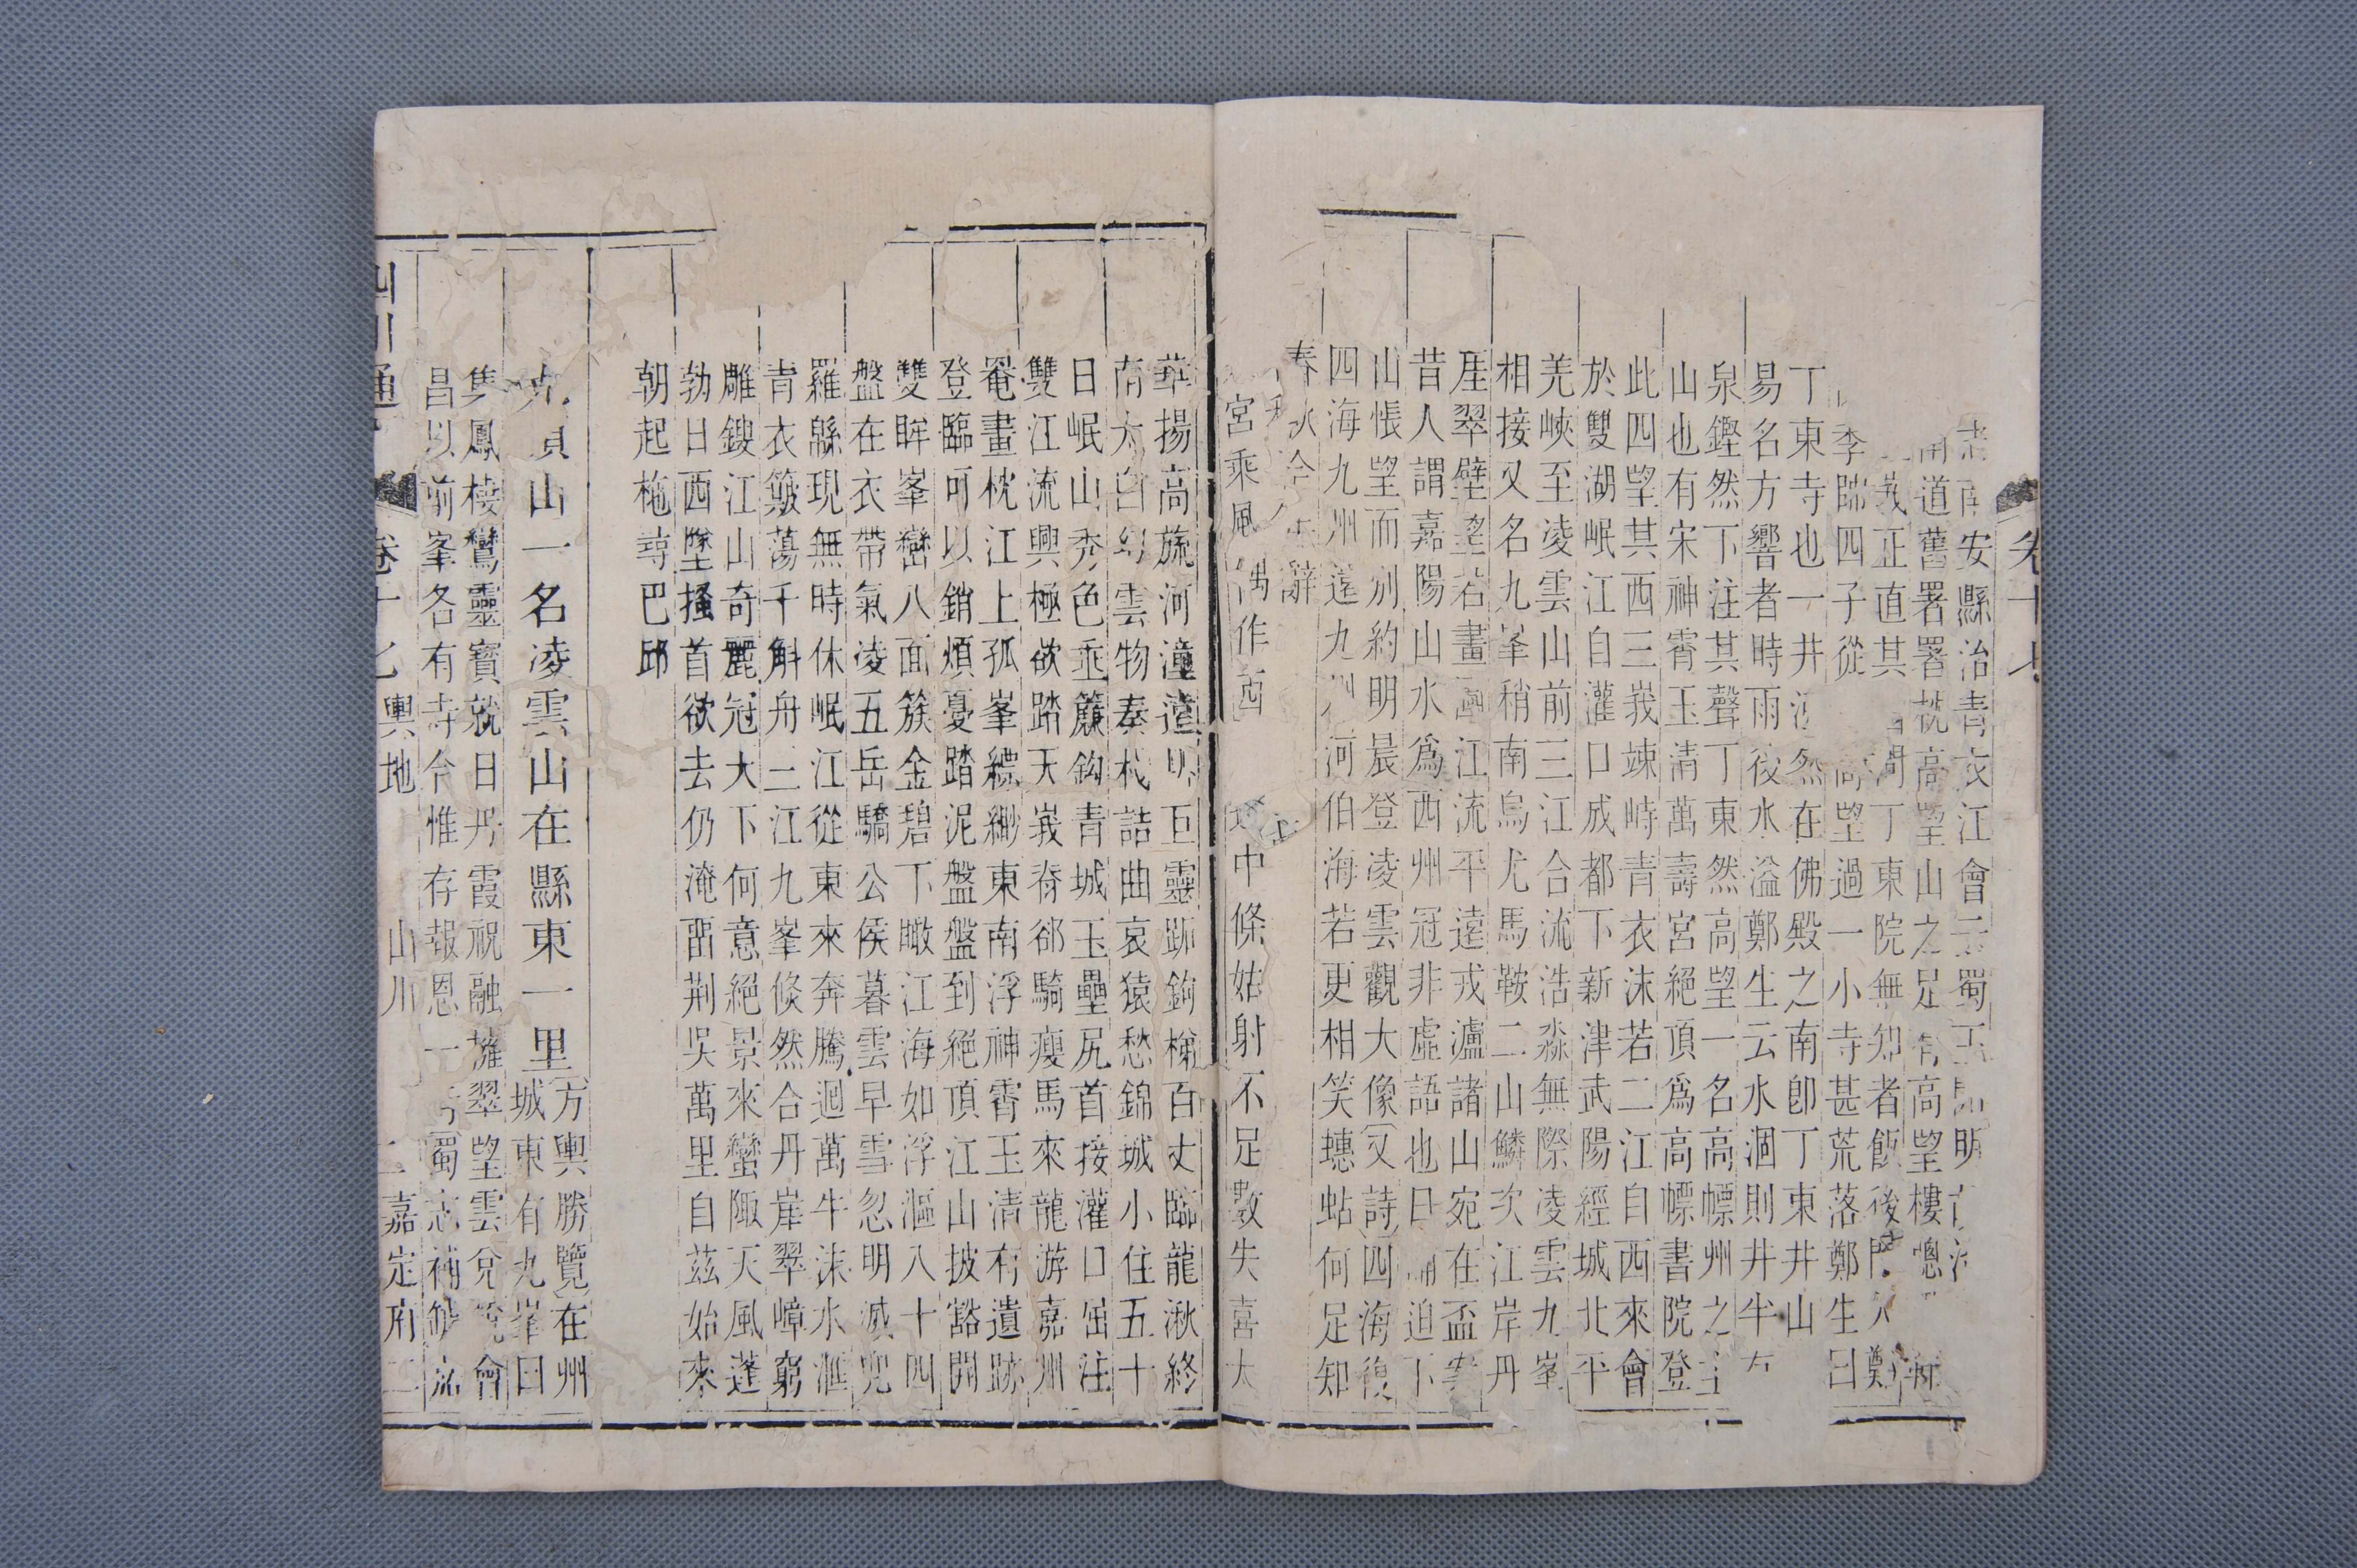 卷十七
南安縣治青衣江會云蜀王開明
道舊署署枕高望山之足有高望樓
正直其 丁東院無知者飯後
李踹四子從 高望過一小寺甚荒落鄭生曰
丁東寺也一井 然在佛殿之南卽丁東井山
易名方響者時雨後水溢鄭生云水涸則井半
泉鏗然下注其聲丁東然高望一名高幖州之主
山也有宋神霄玉清萬壽宮絕頂爲高幖書院登
此四望其西三峩竦峙青衣沫若二江自西來會
於雙湖岷江自灌口成都下新津武陽經城北平
羌峽至凌雲山前三江合流浩淼無際凌雲九峯
相接又名九峯稍南烏尤馬鞍二山鱗次江岸丹
厓翠壁望若畫圖江流平遠戎瀘諸山宛在盃案
昔人謂嘉陽山水爲西州冠非虛語也日晡迫下
山悵望而別約明晨登凌雲觀大像又詩四海復
四海九州還九州河伯海若更相笑蟪蛄何足知
春秋 辭
宮乘風 作西 中條姑射不足數失喜太
華揚高旒河潼遶 巨靈跡鉤梯百丈臨龍湫終
南太白 雲物奏杙詰曲哀猿愁錦城小住五十
日岷山秀色垂簾鉤青城玉壘尻首接灌口 注
雙江流興極欲踏天峩脊郤騎瘦馬來龍游嘉州
罨畫枕江上孤峯縹緲東南浮神霄玉清有遺跡
登臨可以銷煩憂踏泥盤盤到絕頂江山披豁開
雙眸峯巒八面簇金碧下瞰江海如浮漚八十四
盤在衣帶氣凌五岳驕公侯暮雲早雪忽明滅兜
羅緜現無時休岷江從東來奔騰迴萬牛沫水滙
青衣簸蕩千斛舟三江九峯倐然合丹崖翠嶂窮
雕鎪江山奇麗冠天下何意絕景來蠻陬天風蓬
勃日西墜搔首欲去仍淹留荆吳萬里自茲始來
朝起柂尋巴邱
九頂山一名凌雲山在縣東一里
方輿勝覽在州
城東有九峯曰
集鳳棲鸞靈寶就日丹霞祝融擁翠望雲兌 會
昌以前峯各有寺今惟存報恩一 蜀志補
四川通 卷十七 輿地 山川 二 嘉定府二